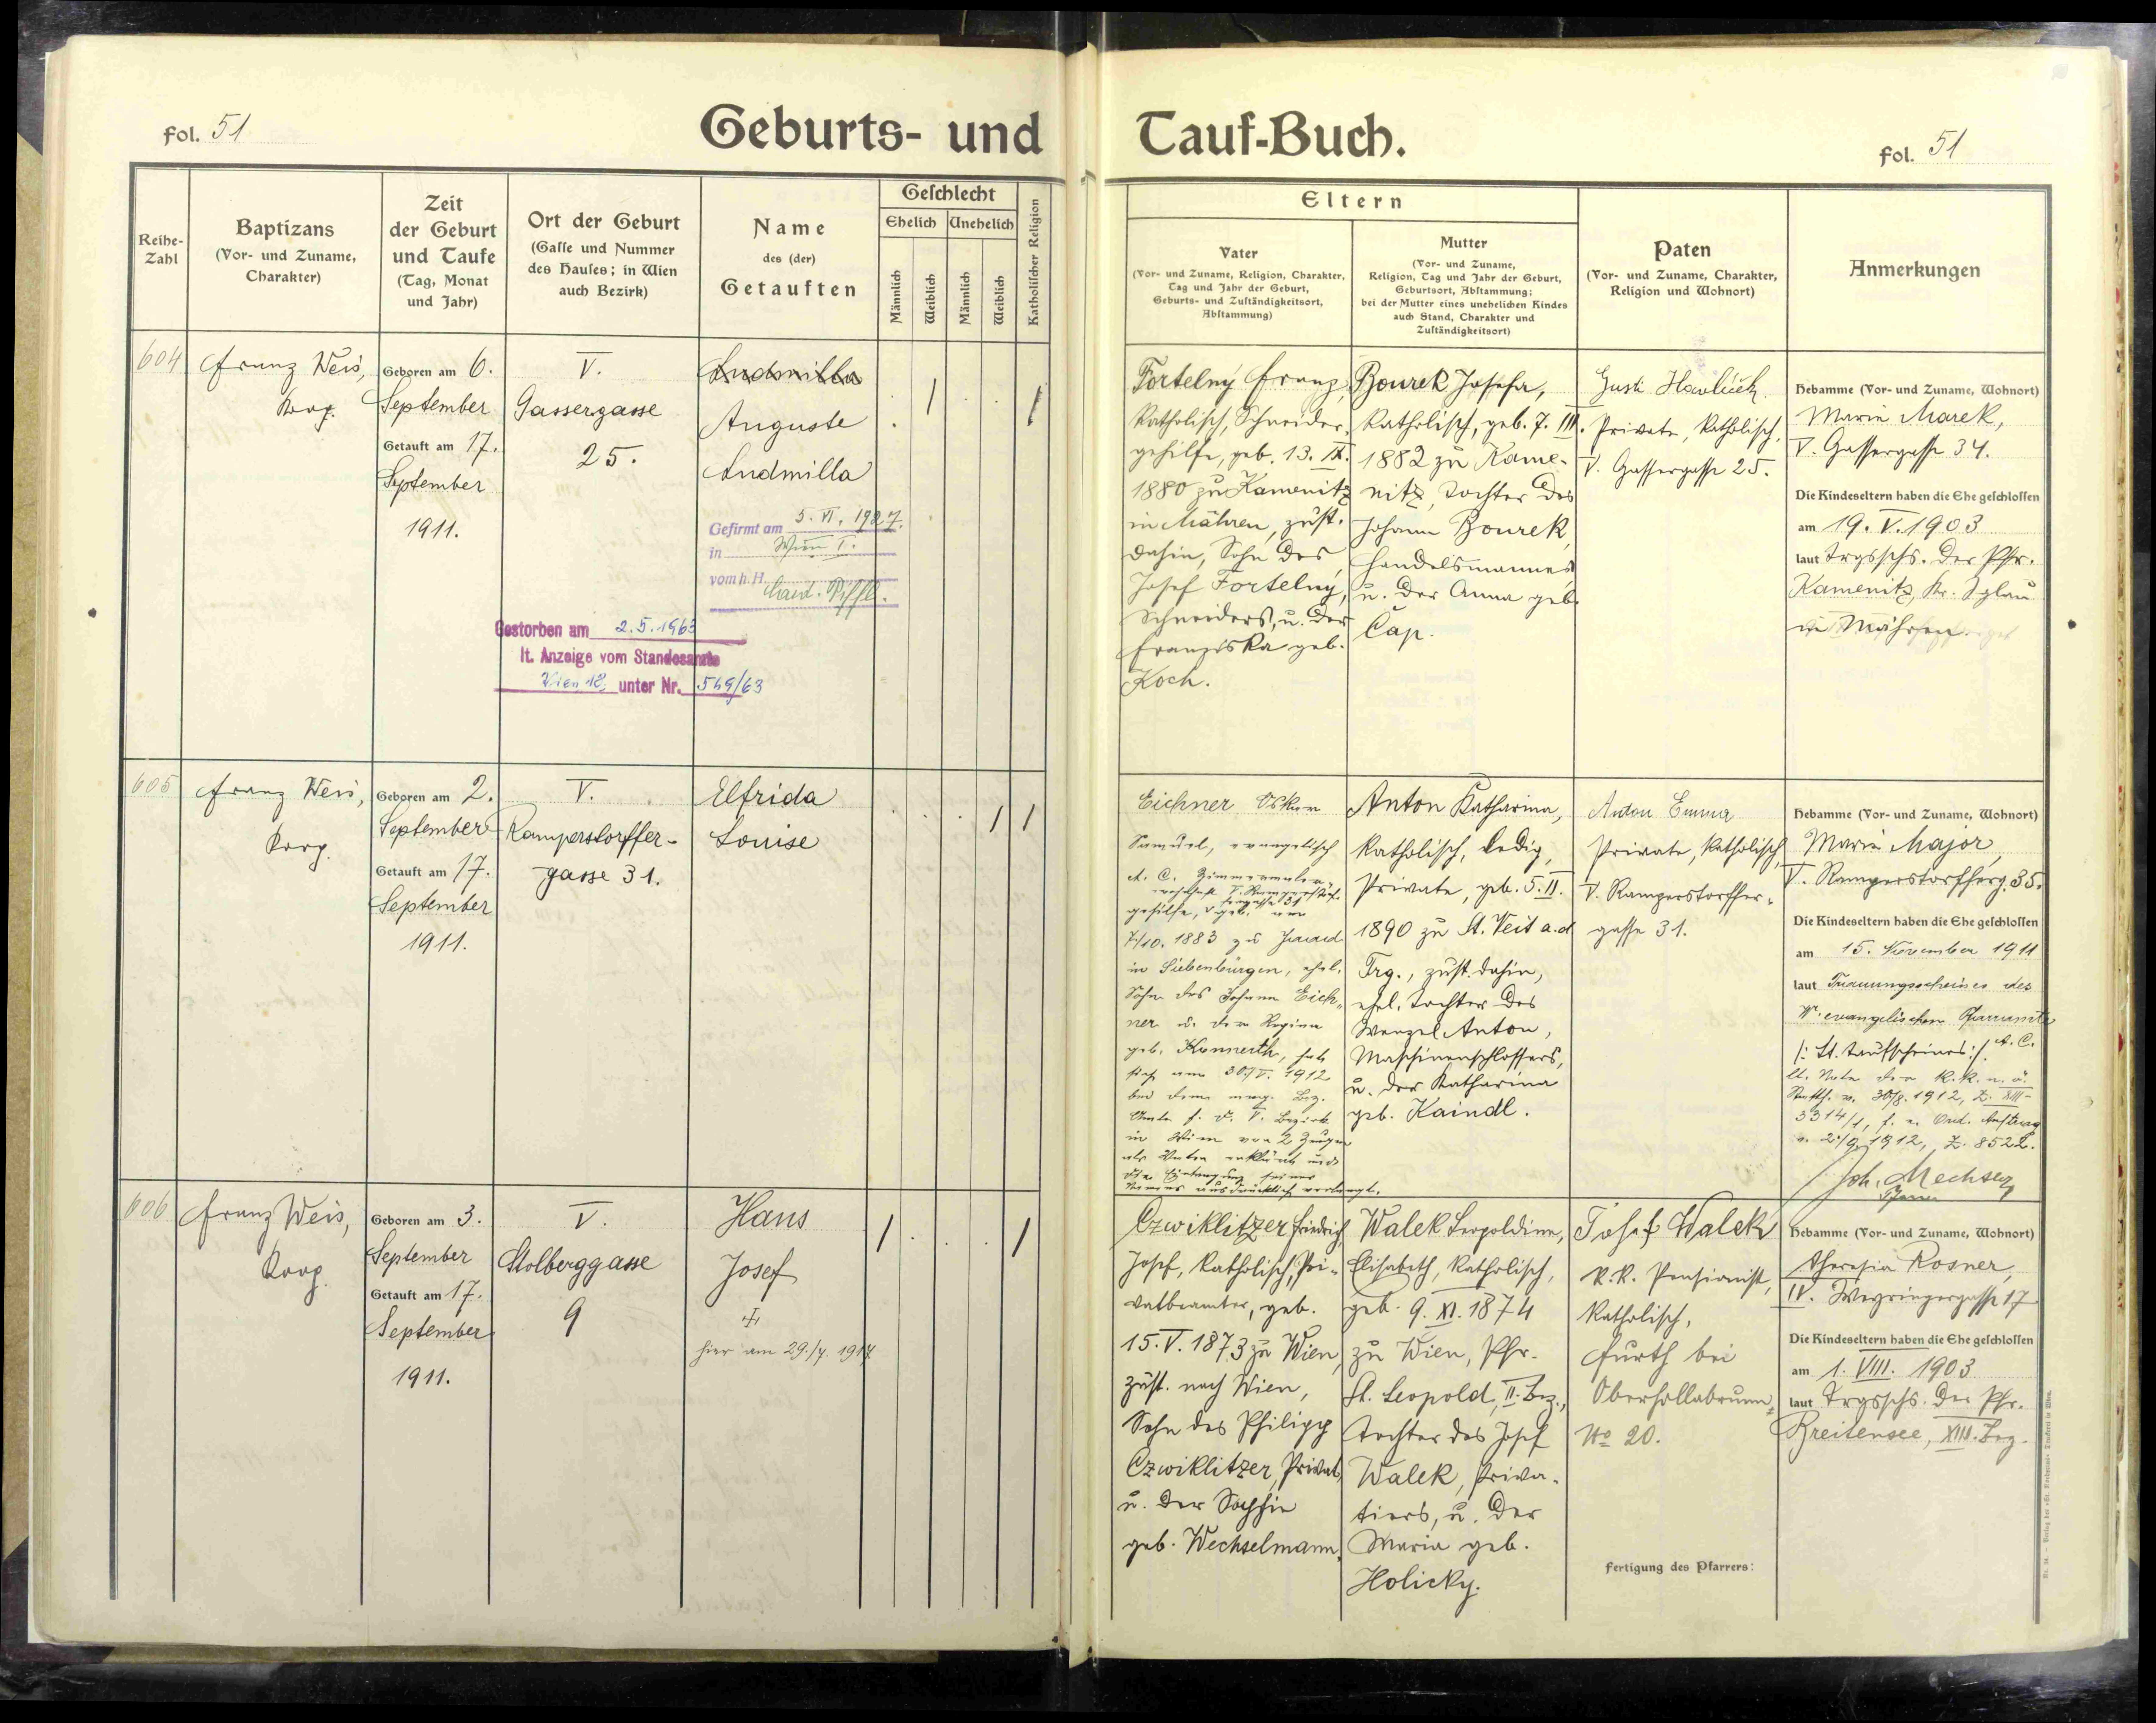 fol. 51
Geburts- und
Reihe-
Zahl
Baptizans
(Vor- und Zuname,
Charakter)
Zeit
der Geburt
und Taufe
(Tag, Monat
und Jahr)
Ort der Geburt
(Gasse und Nummer
des Hauses; in Wien
auch Bezirk)
Name
des (der)
Getauften
Geschlecht
Ehelich
Unehelich
Männlich
Weiblich
Männlich
Weiblich
Katholischer Religion
604
Franz Weis,
Koop.
Geboren am 6.
September
Getauft am 17.
September
1911.
V.
Gassergasse
25.
Ludmilla
Auguste
Ludmilla
Gefirmt am 5. VI. 1927.
in Wien I.
vom h. H.
Card. Piffl.
Gestorben am 2.5.1963
lt. Anzeige vom Standesamte
Wien 18, unter Nr. 549/63
605
Franz Weis,
Koop.
Geboren am 2.
September
Getauft am 17.
September
1911.
V.
Ramperstorffer-
gasse 31.
Elfrida
Louise
606
Franz Weis,
Koop.
Geboren am 3.
September
Getauft am 17.
September
1911.
V.
Stolberggasse
9
Hans
Josef
hier am 29./7. 1917
Tauf-Buch.
fol. 51
Eltern
Vater
(Vor- und Zuname, Religion, Charakter,
Tag und Jahr der Geburt,
Geburts- und Zuständigkeitsort,
Abstammung)
Mutter
(Vor- und Zuname,
Religion, Tag und Jahr der Geburt,
Geburtsort, Abstammung;
bei der Mutter eines unehelichen Kindes
auch Stand, Charakter und
Zuständigkeitsort)
Paten
(Vor- und Zuname, Charakter,
Religion und Wohnort)
Anmerkungen
Fortelný Franz,
katholisch, Schneider-
gehilfe, geb. 13. IX.
1880 zu Kamenitz
in Mähren, zust.
dahin, Sohn des
Josef Fortelný,
Schneiders, u. der
Franziska geb.
Koch.
Bourek Josefa,
katholisch, geb. 7. III.
1882 zu Kame-
nitz, Tochter des
Johann Bourek,
Handelsmannes
u. der Anna geb.
Čap.
Gusti Havliček
Private, katholisch,
V. Gassergasse 25.
Hebamme (Vor- und Zuname, Wohnort)
Maria Marek,
V. Gassergasse 34.
Die Kindeseltern haben die Ehe geschlossen
am 19. V. 1903
laut Trgsschs. der Pfr.
Kamenitz, Kr. Iglau
in Mähren.
Eichner Oskar
Samuel, evangelisch
A. C. Zimmermaler-
gehilfe, geb. am
7/10. 1883 zu
in Siebenbürgen, ehel.
Sohn des Johann Eich-
ner u. der Regina
geb. Konnerth, hat
sich am 30/V. 1912
bei dem mag. Bez.
Amte f. d. V. Bezirk
in Wien vor 2 Zeugen
als Vater erklärt und
die Eintragung seines
Namens ausdrücklich verlangt.
Anton Katharina,
katholisch, ledig,
Private, geb. 5. II.
1890 zu St. Veit a. d
Trg., zust. dahin,
ehel. Tochter des
Wenzel Anton,
Maschinenschlossers,
u. der Katharina
geb. Kaindl.
Anton Emma
Private, katholisch,
V. Ramperstorffer-
gasse 31.
Hebamme (Vor- und Zuname, Wohnort)
Maria Major,
V. Ramperstorfferg. 35.
Die Kindeseltern haben die Ehe geschlossen
am 15. November 1911
laut Trauungsscheines des
Wr. evangelischen Pfarramtes
A. C.
/: lt. Taufscheines :/.
lt. Note der k. k. n. ö.
Statth. v. 30/8. 1912, Z. XIII-
3314/1, f. e. Ord. Auftrag
v. 2/9 1912, Z. 8522.
Joh. Mechser
Pfarrer
Czwiklitzer Friedrich
Josef, katholisch, Pri-
vatbeamter, geb.
15. V. 1873 zu Wien,
zust. nach Wien,
Sohn des Philipp
Czwiklitzer, Privat,
u. der Sophie
geb. Wechselmann.
Walek Leopoldine,
Elisabeth, katholisch,
geb. 9. XI. 1874
zu Wien, Pfr.
St. Leopold, II. Bez.,
Tochter des Josef
Walek, Priva-
tiers, u. der
Maria geb.
Holicky.
Josef Walek
k. k. Pensionist,
katholisch,
Furth bei
Oberhollabrunn,
No 20.
Fertigung des Pfarrers:
Hebamme (Vor- und Zuname, Wohnort)
Theresia Rosner,
IV. Weyringergasse 17
Die Kindeseltern haben die Ehe geschlossen
am 1. VIII. 1903
laut Trgsschs. der Pfr.
Breitensee, XIII. Bez.